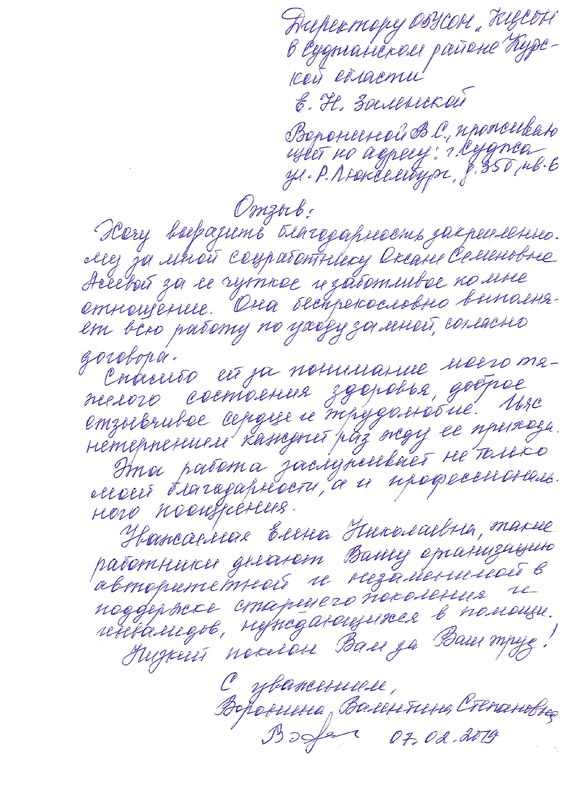 Директору ОБУСОН „КЦСОН
в Суджанском районе Курс-
кой области
Е. Н. Заленской
Ворониной В С., проживаю
щей по адресу: г. Суджа
ул. Р. Люксембург, д. 35б, кв. 6
Отзыв:
Хочу выразить благодарность закрепленно-
му за мной соцработнику Оксане Семеновне
за ее чуткое и заботливое ко мне
отношение. Она беспрекословно выполня-
ет всю работу по уходу за мной, согласно
договора.
Спасибо ей за понимание моего тя-
желого состояния здоровья, доброе
отзывчивое сердце и трудолюбие. И я с
нетерпением каждый раз жду ее прихода.
Эта работа заслуживает не только
моей благодарности, а и профессиональ-
ного поощрения.
Уважаемая Елена Николаевна, такие
работники делают Вашу организацию
авторитетной и незаменимой в
поддержке старшего поколения и
инвалидов, нуждающихся в помощи.
Низкий поклон Вам за Ваш труд!
С уважением,
Воронина Валентина Степановна
07.02.2019